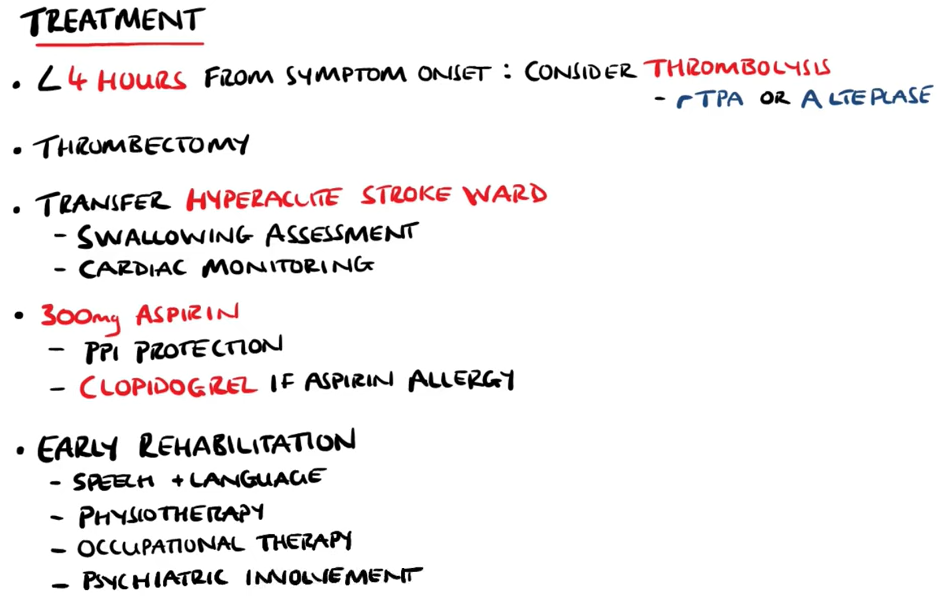 TREATMENT
• < 4 HOURS FROM SYMPTOM ONSET : CONSIDER THROMBOLYSIS
- rTPA OR ALTEPLASE
• THRUMBECTOMY
• TRANSFER HYPERACUTE STROKE WARD
- SWALLOWING ASSESSMENT
- CARDIAC MONITORING
• 300mg ASPIRIN
- PPI PROTECTION
- CLOPIDOGREL IF ASPIRIN ALLERGY
• EARLY REHABILITATION
- SPEECH + LANGUAGE
- PHYSIOTHERAPY
- OCCUPATIONAL THERAPY
- PSYCHIATRIC INVOLVEMENT